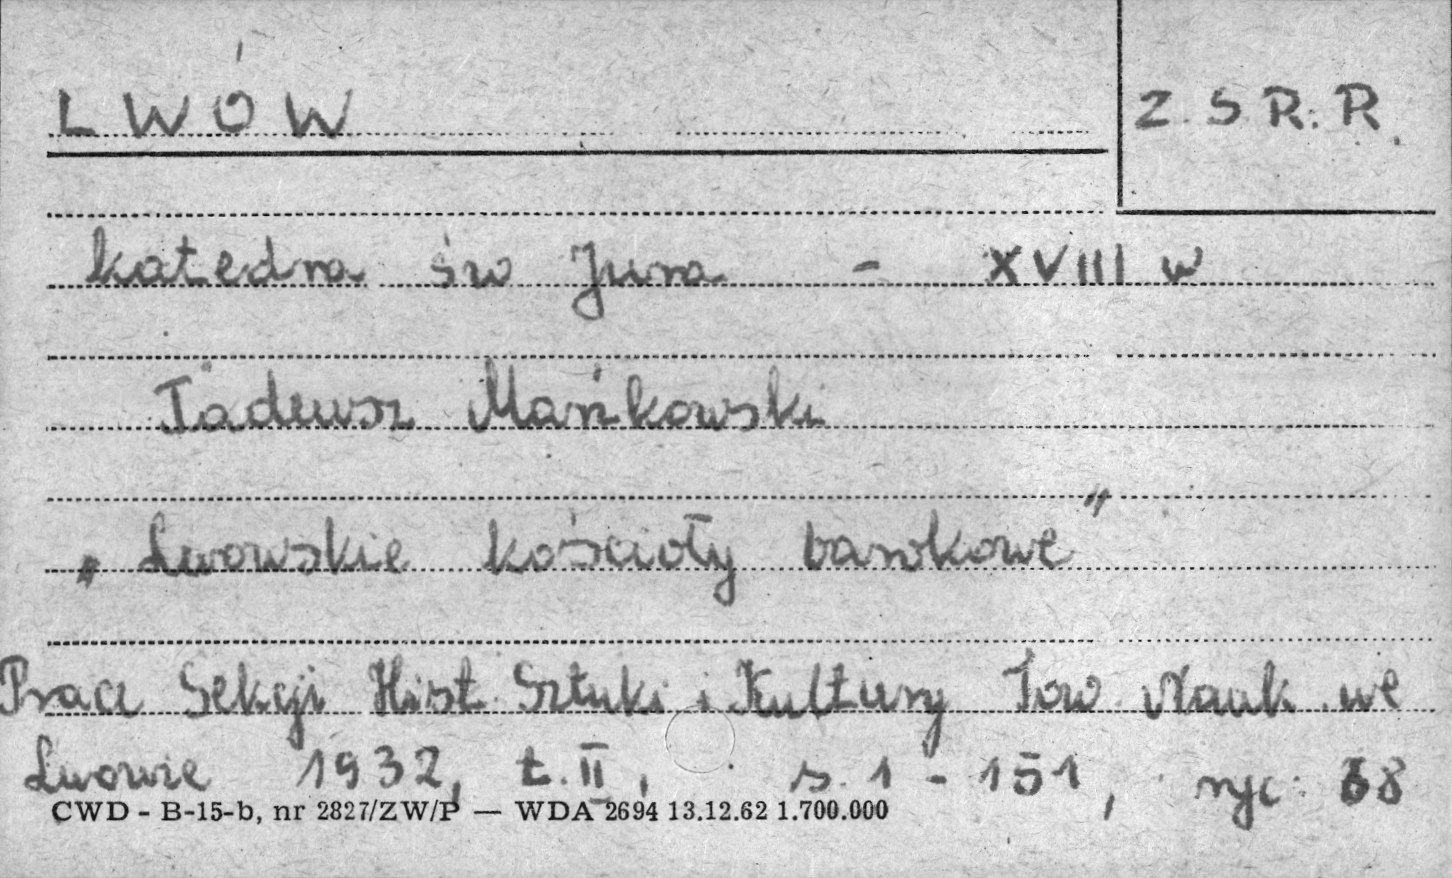 LWÓW
Z.S.R.R.
katedra św Jura - XVIII w
Tadeusz Mańkowski
„Lwowskie kościoły barokowe"
Prace Sekcji Hist. Sztuki i Kultury Tow. Nauk. we
Lwowie 1932, t. II, s. 1 - 151, ryc. 68
CWD - B-15-b, nr 2827/ZW/P — WDA 2694 13.12.62 1.700.000